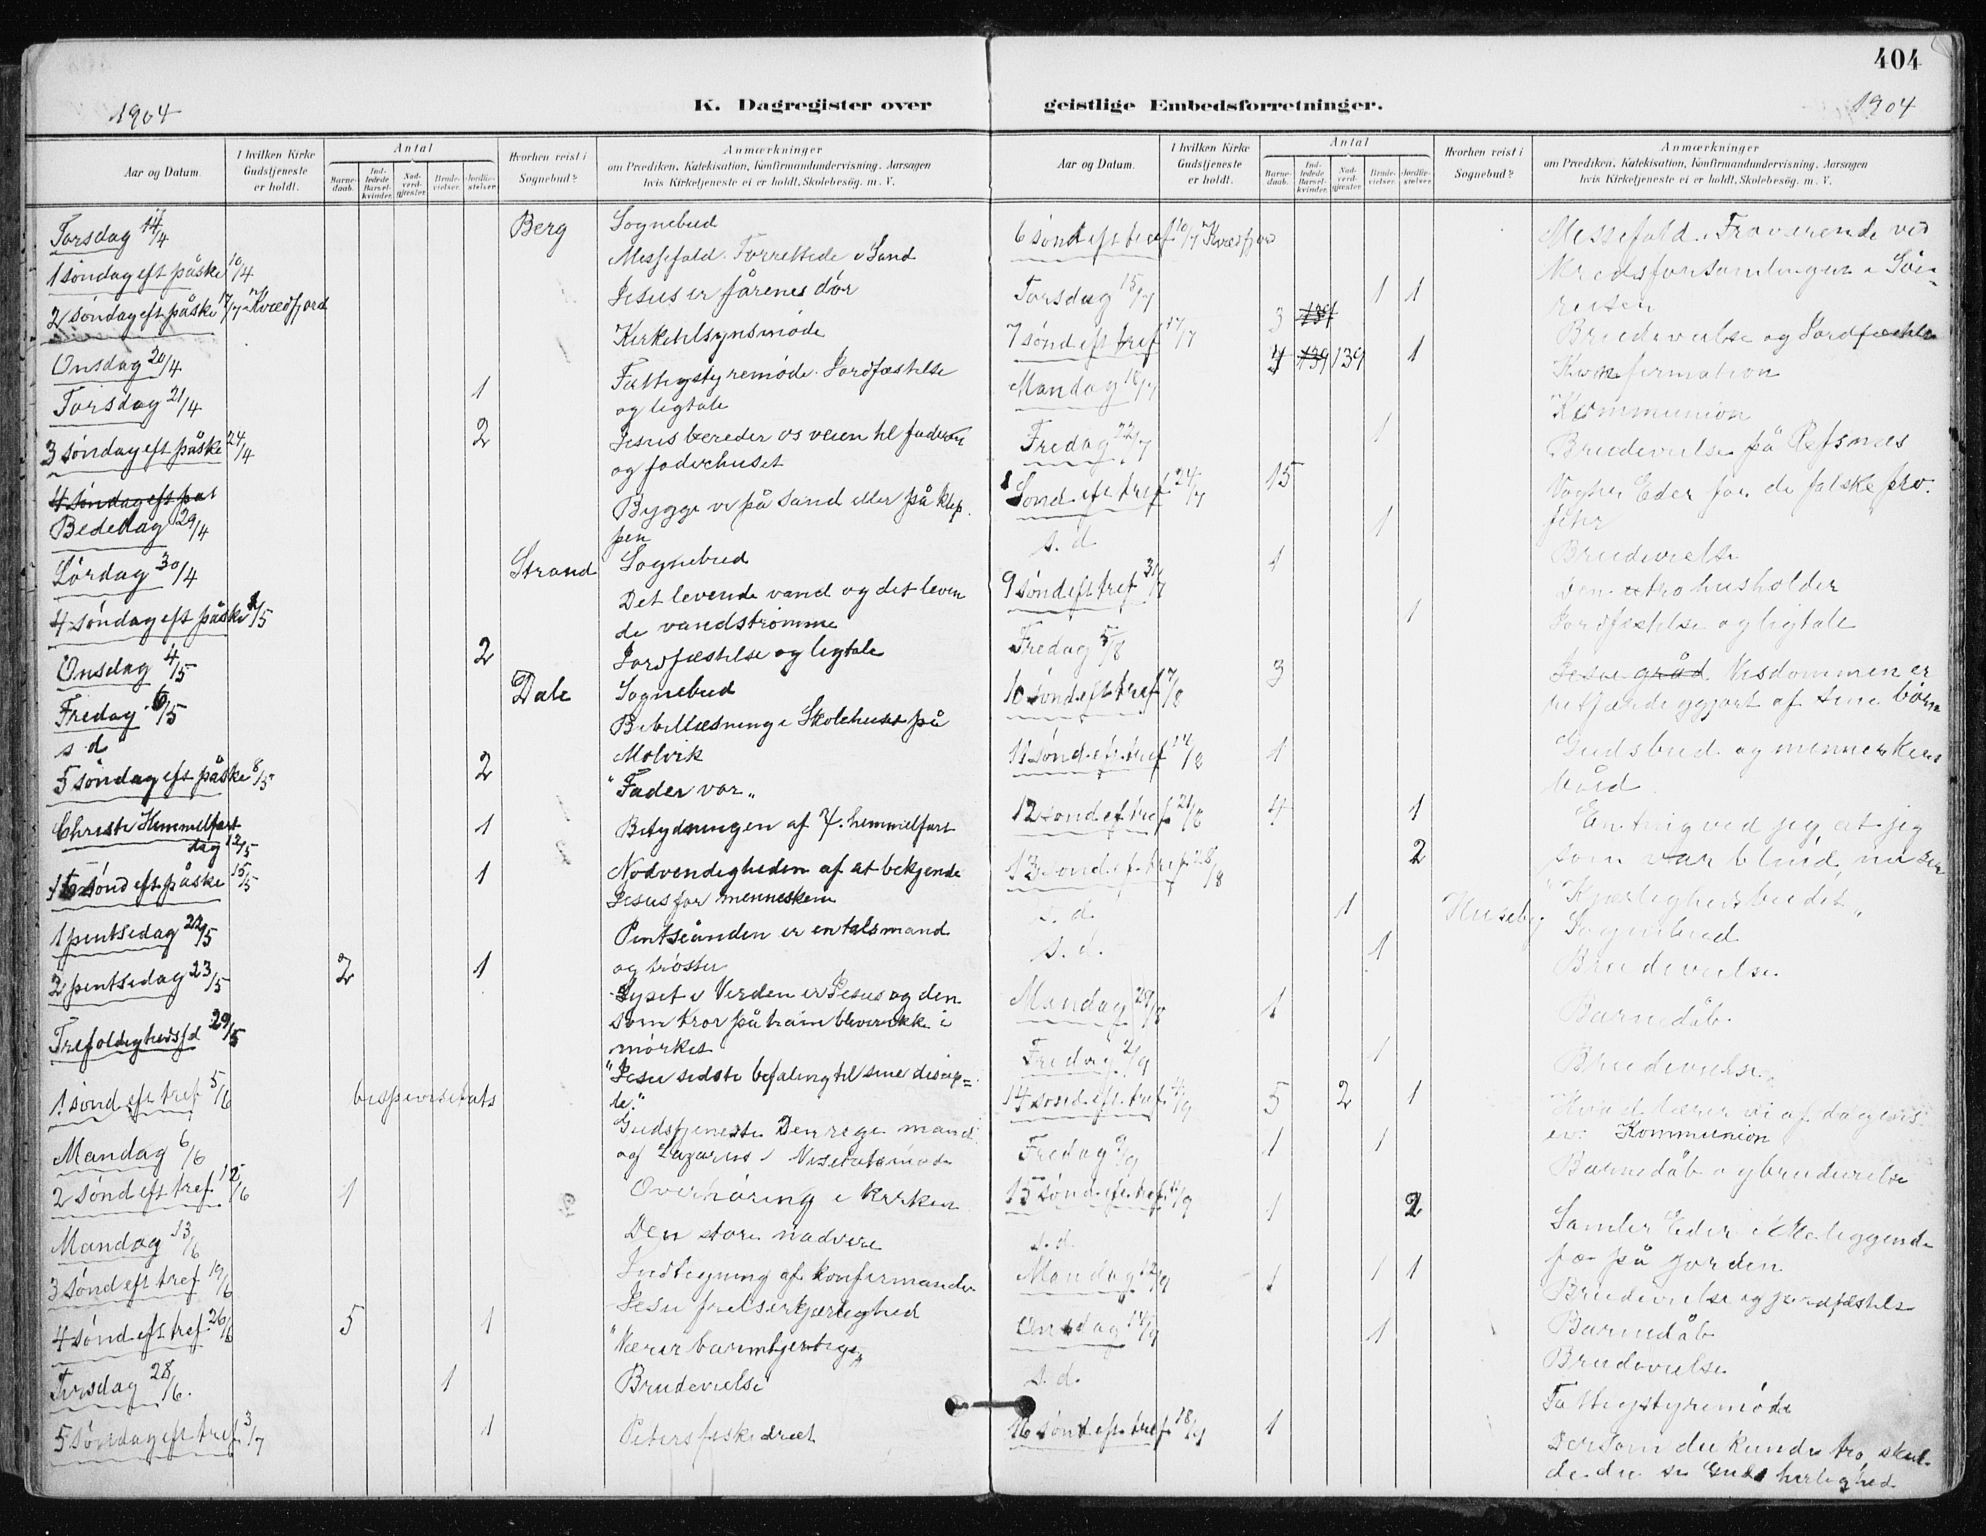 404
1904
K. Dagregister over
geistlige Embedsforretninger.
1904
Aar og Datum.
I hvilken Kirke Gudstjeneste er holdt.
Antal
Barnedaab.
Indledede Barselkvinder.
Nadverdgjester
Brudevielser.
Jordfæstelser
Hvorhen reist i Sognebud?
Anmærkninger
om Prædiken, Katekisation, Konfirmandundervisning, Aarsagen
hvis Kirketjeneste ei er holdt, Skolebesøg. m. V.
Torsdag 14/4 Berg Sognebud
1 søndag eft påske 10/4 Messefald. Forrettede i Sand
2 søndag eft påske 17/7 Kvædfjord Jesus er fårenes dør
Onsdag 20/4 Kirketilsynsmøde
Torsdag 21/4 1 Fattigstyremøde. Jordfæstelse
og ligtale
3 søndag eft påske 24/4 2 Jesus bereder os veien til faderen
og faderhuset
4 søndag eft pås
Bededag 29/4 Bygge vi på sand eller på klep
pen
Lørdag 30/4 Strand Sognebud
4 søndag eft påske 1/5 Det levende vand og det leven
de vandstrømme
Onsdag 4/5 2 Jordfæstelse og ligtale
Fredag 6/5 Dale Sognebud
s. d. Bibellæsning i Skolehuset på
Molvik
5 søndag eft påske 8/5 2 "Fader vor„
Christi Himmelfart
dag 12/5 1 Betydningen af J. himmelfart
6 sønd eft påske 15/5 1 Nødvendigheden af at bekjende
Jesus for menneskene
1 pintsedag 22/5 Pintseånden er en talsmand
og trøster
2 pintsedag 23/5 2 1 Lyset i Verden er Jesus og den
som tror på ham bliver ikke i
mørket
Trefoldighedsfd 29/5 "Jesu sidste befaling til sine discip=
le."
1 sønd eft tref 5/6 bispevisitats Gudstjeneste Den rige mand
og Lazarus / Visitatsmøde
Mandag 6/6 Overhøring i kirken
2 sønd eft tref. 12/6 1 Den store nadvere
Mandag 13/6 Indtegning af konfirmander
3 sønd eft tref 19/6 Jesu frelserkjærlighed
4 sønd eft tref. 26/6 5 1 "Værer barmhjertige„
Tirsdag 28/6. 1 Brudevielse
5 søndag eft tref 3/7 1 Peters fiskedræt
Aar og Datum.
I hvilken Kirke Gudstjeneste er holdt.
Antal
Barnedaab.
Indledede Barselkvinder.
Nadverdgjester
Brudevielser.
Jordfæstelser
Hvorhen reist i Sognebud?
Anmærkninger
om Prædiken, Katekisation, Konfirmandundervisning, Aarsagen
hvis Kirketjeneste ei er holdt, Skolebesøg. m. V.
6 sønd eft tref 10/7 Kvædfjord Messefald. Fraværende ved
Kredsforsamlingen i Sør-
reisen
Torsdag 15/7 1 1 Brudevielse og Jordfæstelse
7 sønd eft tref 17/7 3 139 Konfirmation
Mandag 18/7 4 139 139 1 Kommunion
Fredag 22/7 1 Brudevielse på Refsnæs
8 Sønd eft tref 24/7 15 Vogter Eder for de falske pro
feter
s. d. 1 Brudevielse
9 sønd eft tref 31/7 1 Den utro husholder
Fredag 5/8 1 Jordfæstelse og ligtale
10 sønd eft tref 7/8 3 Jesu gråd Visdommen er
retfærdiggjort af sine børn
11 sønd eft tref 14/8 1 Guds bud og menneskers
båd
12 sønd eft tref 21/8 4 1 En ting ved jeg, at jeg
som var blind, nu ser
13 sønd eft tref 28/8 2 "Kjærlighedsbudet„
s. d. 1 Huseby Sognebud
s. d. 1 Brudevielse
Mandag 29/8 1 Barnedåb
Fredag 2/9 1 Brudevielse
14 sønd eft tref 4/9 5 2 1 Hvad lærer vi af
Kommunion
Fredag 9/9 1 1 Barnedåb og brudevielse
15 sønd eft tref 11/9 1 2 Samler Eder ikke liggende
fæ på jorden
s. d.
Mandag 12/9 1 1 1 Brudevielse og jordfæstelse
Barnedåb
Onsdag 14/9 1 Brudevielse
s. d. Fattigstyremøde
16 sønd eft tref 18/9 1 Dersom du kunde tro, skul
de du se Guds herlighed